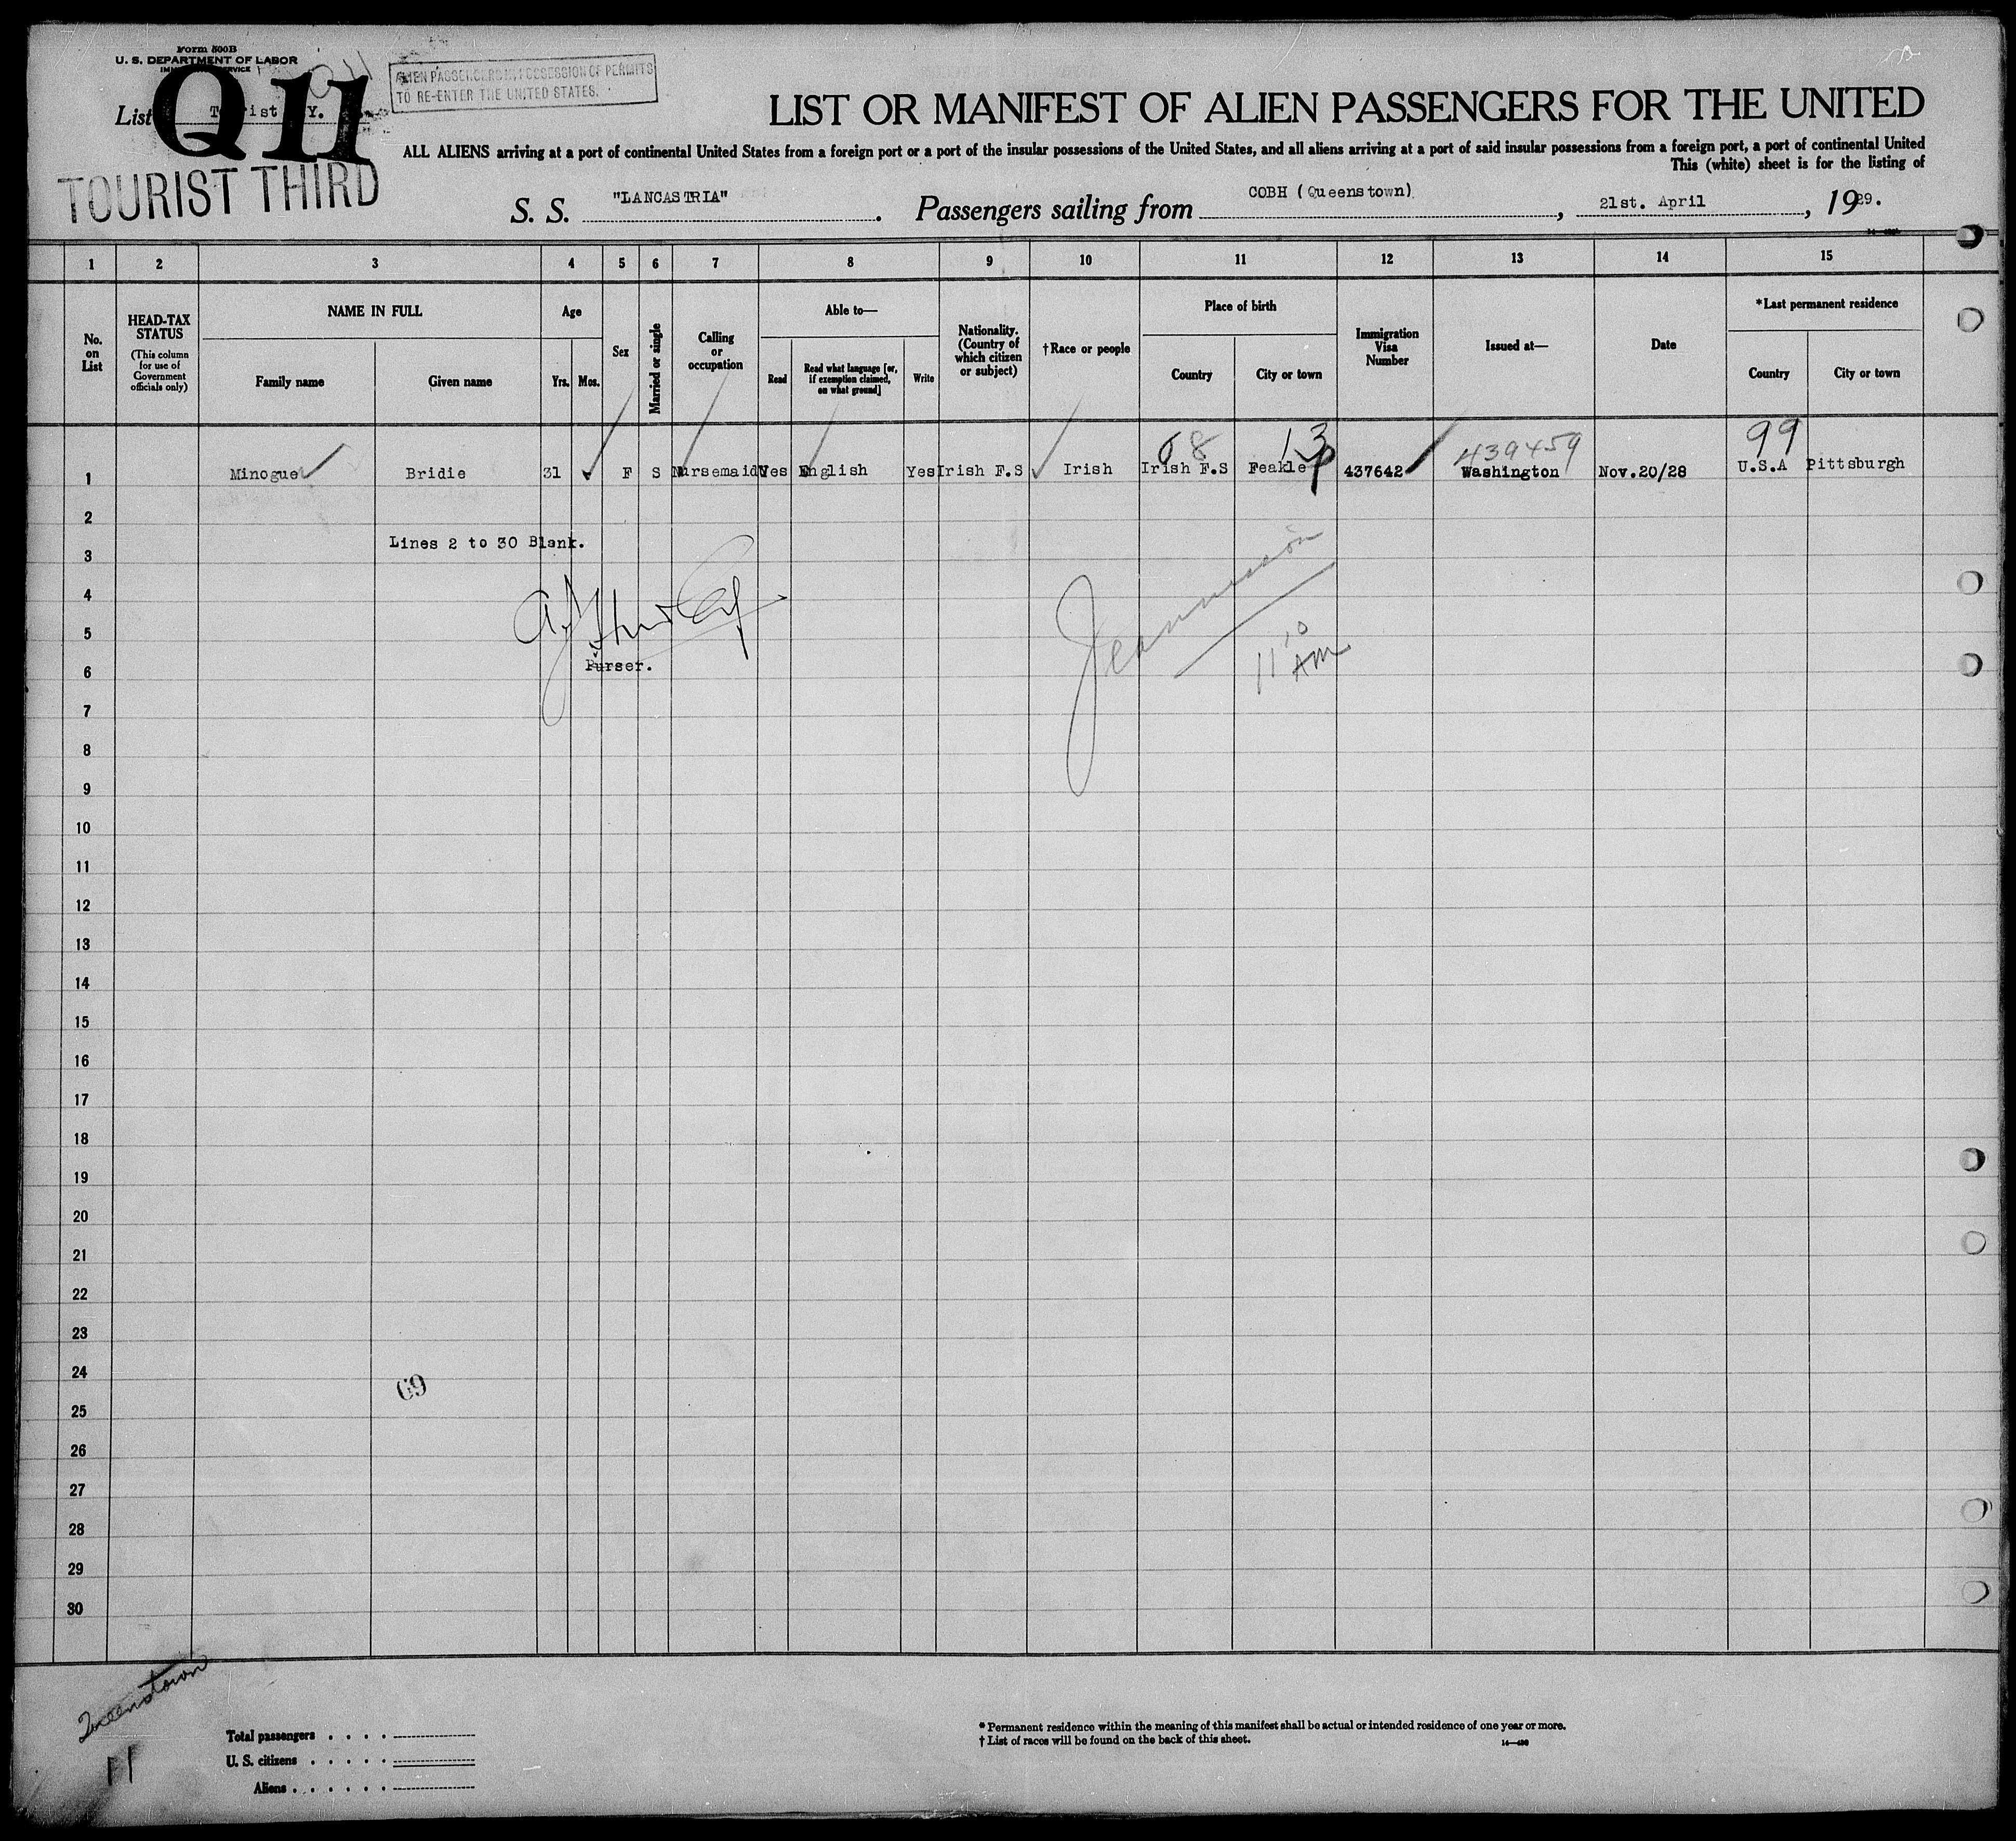 Form 500B
U. S. DEPARTMENT OF LABOR
SERVICE
ALIEN PASSENGERS IN POSSESSION OF PERMITS
TO RE-ENTER THE UNITED STATES.
List Tourist Y.
Q11
TOURIST THIRD
LIST OR MANIFEST OF ALIEN PASSENGERS FOR THE UNITED
ALL ALIENS arriving at a port of continental United States from a foreign port or a port of the insular possessions of the United States, and all aliens arriving at a port of said insular possessions from a foreign port, a port of continental United
This (white) sheet is for the listing of
S. S. "LANCASTRIA". Passengers sailing from COBH (Queenstown), 21st. April, 1929.
1 2 3 4 5 6 7 8 9 10 11 12 13 14 15
No. on List
HEAD-TAX STATUS
(This column for use of Government officials only)
NAME IN FULL
Family name
Given name
Age
Yrs. Mos.
Sex
Married or single
Calling or occupation
Able to—
Read
Read what language [or, if exemption claimed, on what ground]
Write
Nationality. (Country of which citizen or subject)
†Race or people
Place of birth
Country
City or town
Immigration Visa Number
Issued at—
Date
*Last permanent residence
Country
City or town
68 13 439459 99
1 Minogue Bridie 31 F S Nursemaid Yes English Yes Irish F.S Irish Irish F.S Feakle 437642 Washington Nov.20/28 U.S.A Pittsburgh
2
Lines 2 to 30 Blank.
3
4
5
Purser.
11 10 AM
6
7
8
9
10
11
12
13
14
15
16
17
18
19
20
21
22
23
24
69
25
26
27
28
29
30
Queenstown
11
Total passengers . . . .
U. S. citizens . . . . .
Aliens . . . . . .
* Permanent residence within the meaning of this manifest shall be actual or intended residence of one year or more.
† List of races will be found on the back of this sheet.